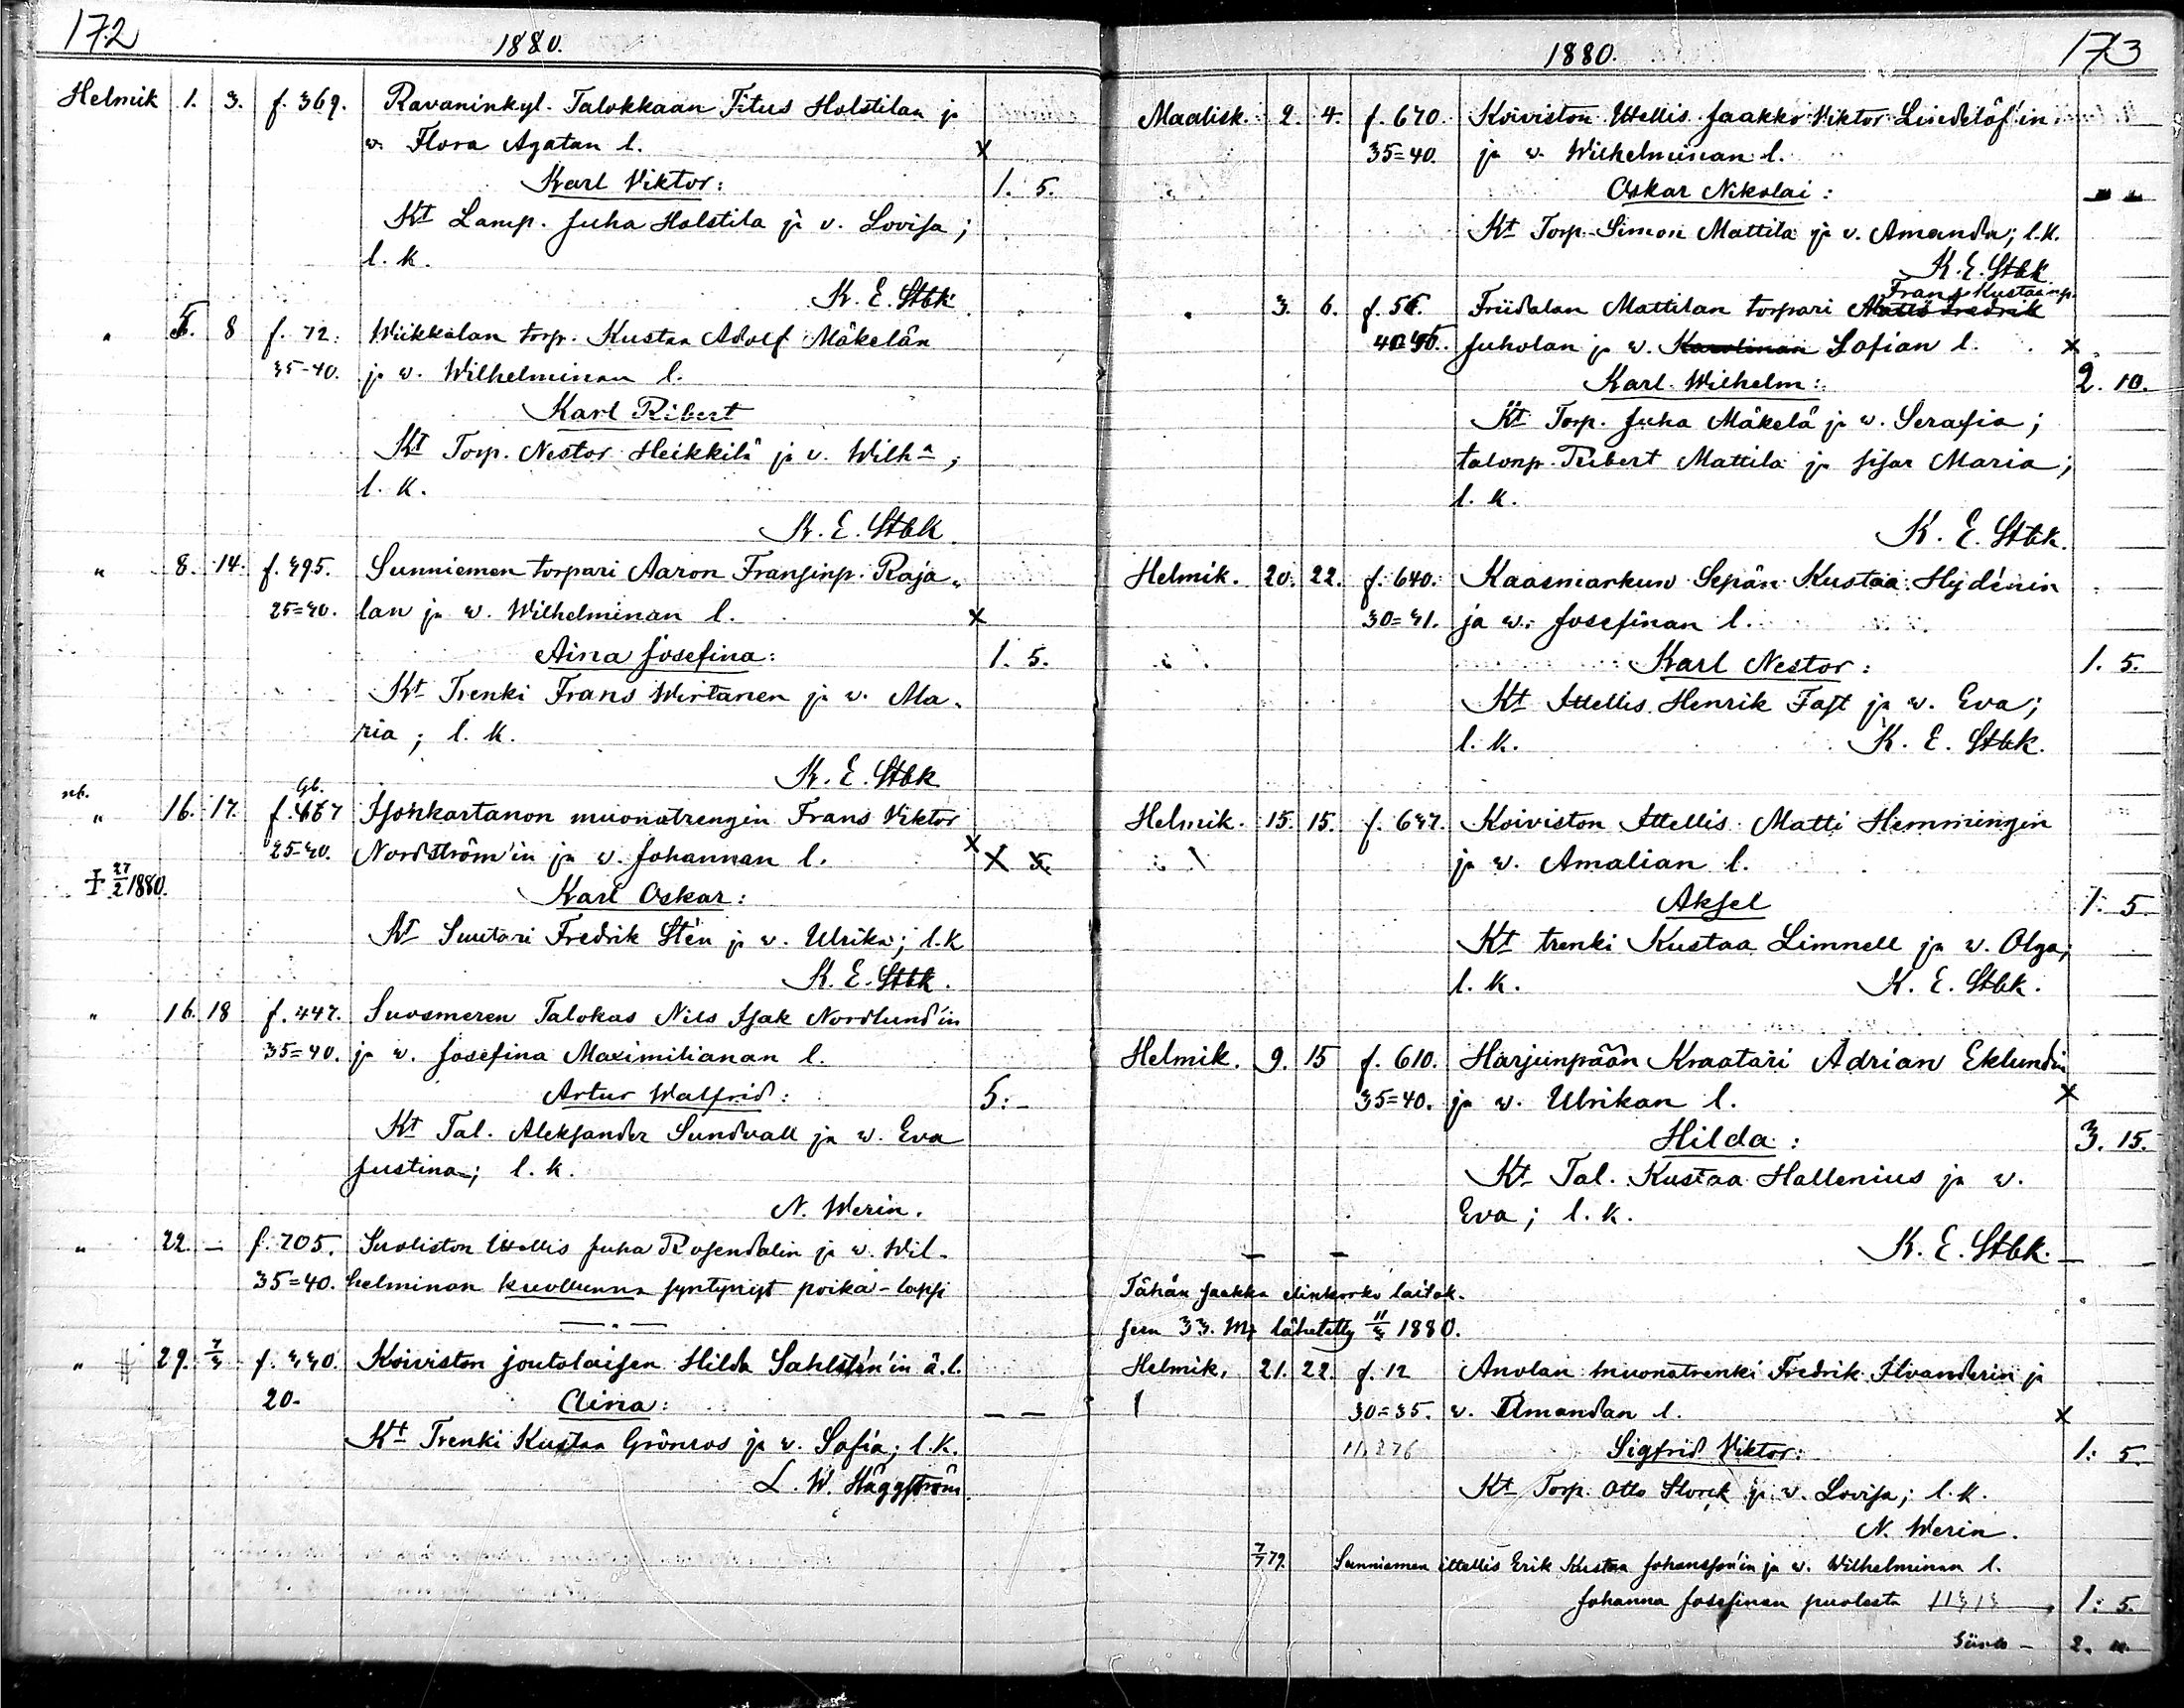 172
1880.
Helmik 1. 3. f. 369. Ravaninkyl. Talokkaan Titus Holstilan ja
w. Flora Agatan l. x
Karl Viktor: 1. 5.
Kt Lamp. Juha Holstila ja v. Lovisa;
l. k.
K. E. Stbk.
" 5. 8 f. 72. Wiikkalan torp. Kustaa Adolf Mäkelän
35-40. ja w. Wilhelminan l.
Karl Ribert
Kt Torp. Nestor Heikkilä ja v. Wilh-a;
l. k.
K. E. Stbk.
" 8. 14. f. 495. Sunniemen torpari Aaron Fransinp. Raja-
25=40. lan ja w. Wilhelminan l. x
Aina Josefina: 1. 5.
Kt Trenki Frans Wirtanen ja w. Ma-
ria; l. k.
K. E. Stbk
nb. Gb.
" 16. 17. f. 467 Isonkartanon muonatrengin Frans Viktor
25-40. Nordström'in ja w. Johannan l. x 1 5.
† 27/2 1880. Karl Oskar:
Kt Suutari Fredrik Stén ja w. Ulrika; l.k
K. E. Stbk.
" 16. 18 f. 447. Suosmeren Talokas Nils Isak Nordlund'in
35=40. ja w. Josefina Maximilianan l.
Artur Walfrid: 5:-
Kt Tal. Aleksander Sundvall ja w. Eva
Justina; l. k.
N. Werin.
" 22. - f. 705. Suoliston Ittellis Juha Rosendalin ja w. Wil-
35=40. helminan kuollunna syntynyt poika-lapsi
" 29. 7/3 f. 440. Koiviston joutolaisen Hilda Sahlstén'in ä.l.
20. Aina: - -
Kt Trenki Kustaa Grönros ja w. Sofia; l.k.
L. W. Häggström.
173
1880.
Maalisk. 2. 4. f. 670. Koiviston Ittellis Jaakko Viktor Lindelöf'in
35=40. ja w. Wilhelminan l.
Oskar Nikolai:
Kt Torp. Simon Mattila ja v. Amanda; l.k.
K. E. Stbk
Frans Kustaanp.
" 3. 6. f. 56. Friidalan Mattilan torpari Matts Fredrik
40-45. Juholan ja w. Karolinan Sofian l. x
Karl Wilhelm: 2. 10.
Kt Torp. Juha Mäkelä ja w. Serafia;
talonp. Ribert Mattila ja sisar Maria;
l. k.
K. E. Stbk.
Helmik. 20. 22. f. 640. Kaasmarkun Sepän Kustaa Hydénin
30=41. ja w. Josefinan l.
Karl Nestor: 1. 5.
Kt Ittellis Henrik Fast ja w. Eva;
l. k. K. E. Stbk.
Helmik. 15. 15. f. 647. Koiviston Ittellis Matti Hemmingin
ja w. Amalian l.
Aksel 1: 5
Kt trenki Kustaa Limnell ja w. Olga;
l. k. K. E. Stbk.
Helmik. 9. 15 f. 610. Harjunpään Kraatari Adrian Eklundin
35=40. ja w. Ulrikan l. x
Hilda: 3. 15.
Kt Tal. Kustaa Hallenius ja w.
Eva; l. k.
K. E. Stbk.
Tähän saakka elinkorko laitok-
seen 33. Mk lähetetty 11/3 1880.
Helmik. 21. 22. f. 12 Anolan muonatrenki Fredrik Ilvanderin ja
30=35. w. Amandan l. x
Sigfrid Viktor: 1: 5.
Kt Torp. Otto Storck ja w. Lovisa; l. k.
N. Werin.
7/7 79. Sunniemen ittellis Erik Kustaa Johansson'in ja w. Wilhelminan l.
Johanna Josefinan puolesta 1: 5.